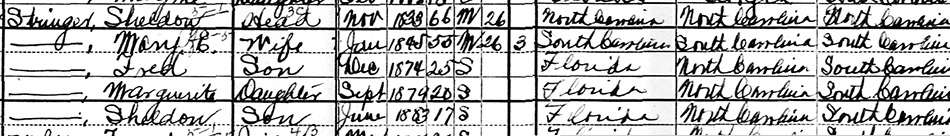 Stringer, Sheldon Head Nov 1833 66 M 26 North Carolina North Carolina North Carolina
——, Mary B. Wife Jan 1845 55 M 26 3 South Carolina South Carolina South Carolina
——, Fred Son Dec 1874 25 S Florida North Carolina South Carolina
——, Margurite Daughter Sept 1879 20 S Florida North Carolina South Carolina
——, Sheldon Son June 1883 17 S Florida North Carolina South Carolina